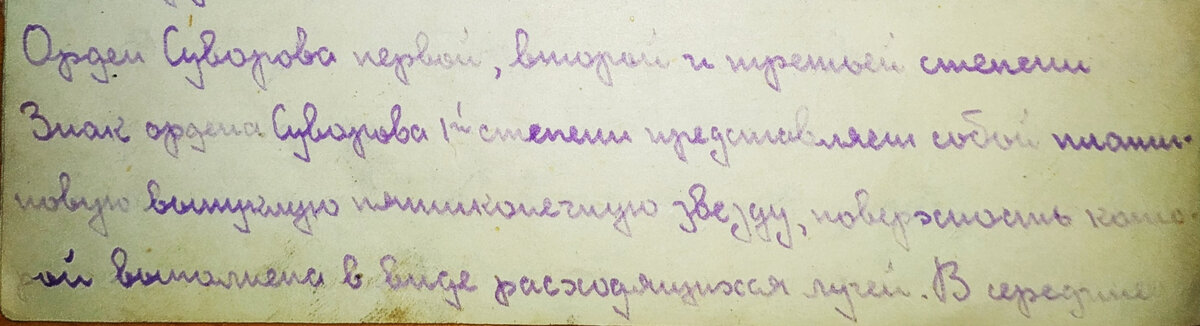 Орден Суворова первой, второй и третьей степени
Знак ордена Суворова 1й степени представляет собой плати-
новую выпуклую пятиконечную звезду, поверхность кото-
рой выполнена в виде расходящихся лучей. В середине